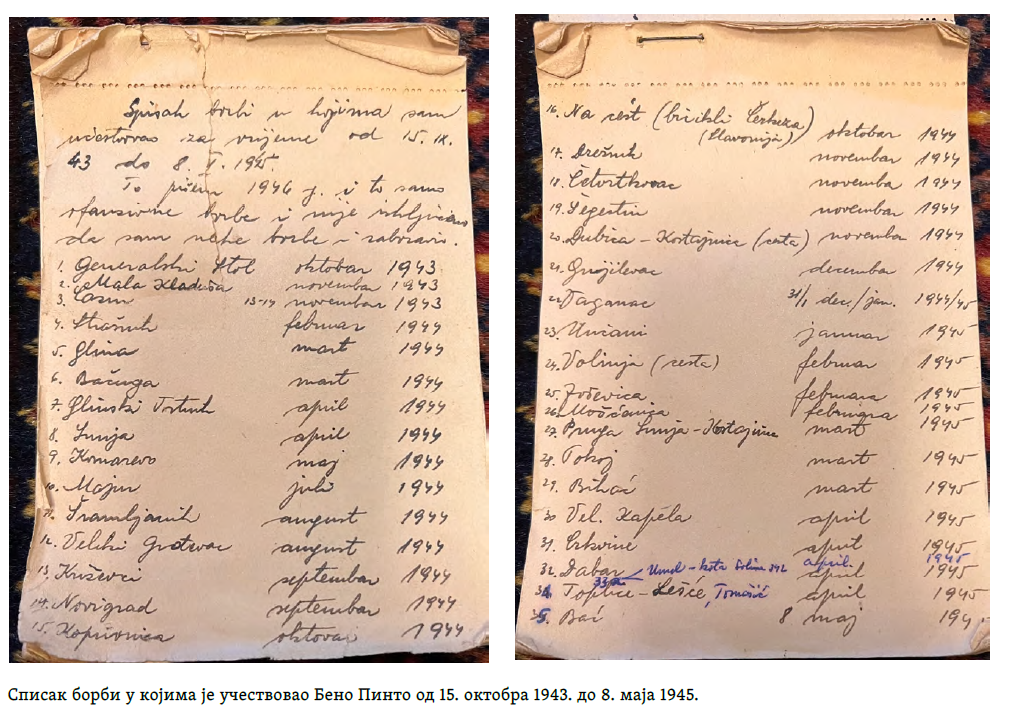 Spisak borbi u kojima sam
učestvovao za vrijeme od 15. IX.
43 do 8. V. 1945.
To pišem 1946 g. i to samo
ofanzivne borbe i nije isključeno
da sam neke borbe i zaboravio.
1. Generalski Stol oktobar 1943
2. Mala Kladuša novembar 1943
3. Cazin 13-14 novembar 1943
4. Stračnik februar 1944
5. Glina mart 1944
6. Bačuga mart 1944
7. Glinski Trtnik april 1944
8. Sunja april 1944
9. Komarevo maj 1944
10. Majur juli 1944
11. Šramljanik august 1944
12. Veliki Grđevac august 1944
13. Križevci septembar 1944
14. Novigrad septembar 1944
15. Koprivnica oktobar 1944
16. Na cest (bivikli Čerkeza
(Slavonija)) oktobar 1944
17. Drežnik novembar 1944
18. Četvrtkovac novemba 1944
19. Segestin novembar 1944
20. Dubica - Kostajnica (cesta) novembar 1944
21. decembar 1944
22. Taganac 31/1 dec./jan. 1944/45
23. Unčani januar 1945
24. Volinja (cesta) februar 1945
25. Joševica februara 1945
26. Mošćanica februara 1945
27. Pruga Sunja - Kostajnica mart 1945
28. Tokoj mart 1945
29. Bihać mart 1945
30 Vel. Kapela april 1945
31. Crkvine april 1945
32. Dabar april 1945
33a Umol - kota Solina 542 april. 1945
34 Toplice - Lešće, Tomašić april 1945
35. Bać 8 maj 194
Списак борби у којима је учествовао Бено Пинто од 15. октобра 1943. до 8. маја 1945.